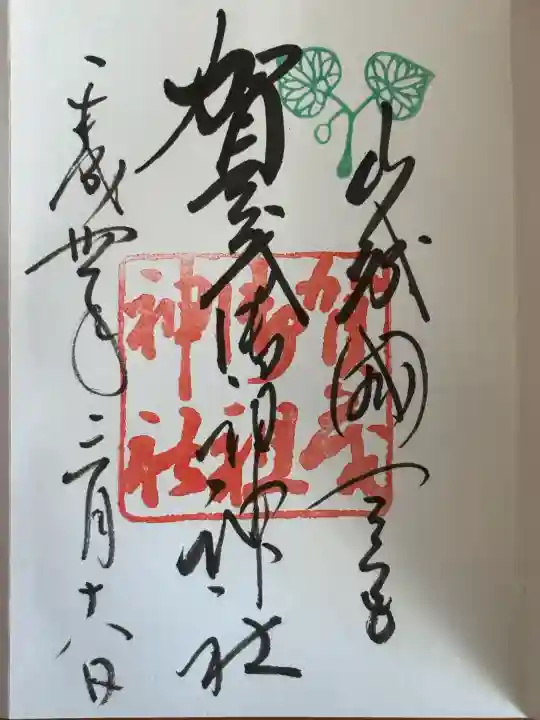 山城國一之宮
賀茂御祖神社
賀茂
御祖
神社
年二月十八日